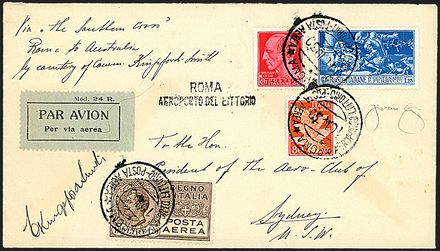 Via the "Southern Cross"
Rome to Australia
by courtesy of Comm. Kingsford Smith
ROMA
AEROPORTO DEL LITTORIO
Mod. 24 R.
PAR AVION
Per via aerea
To the Hon.
President of the Aero-Club of
Sydney
N.S.W.
REGNO
D'ITALIA
POSTA
AEREA